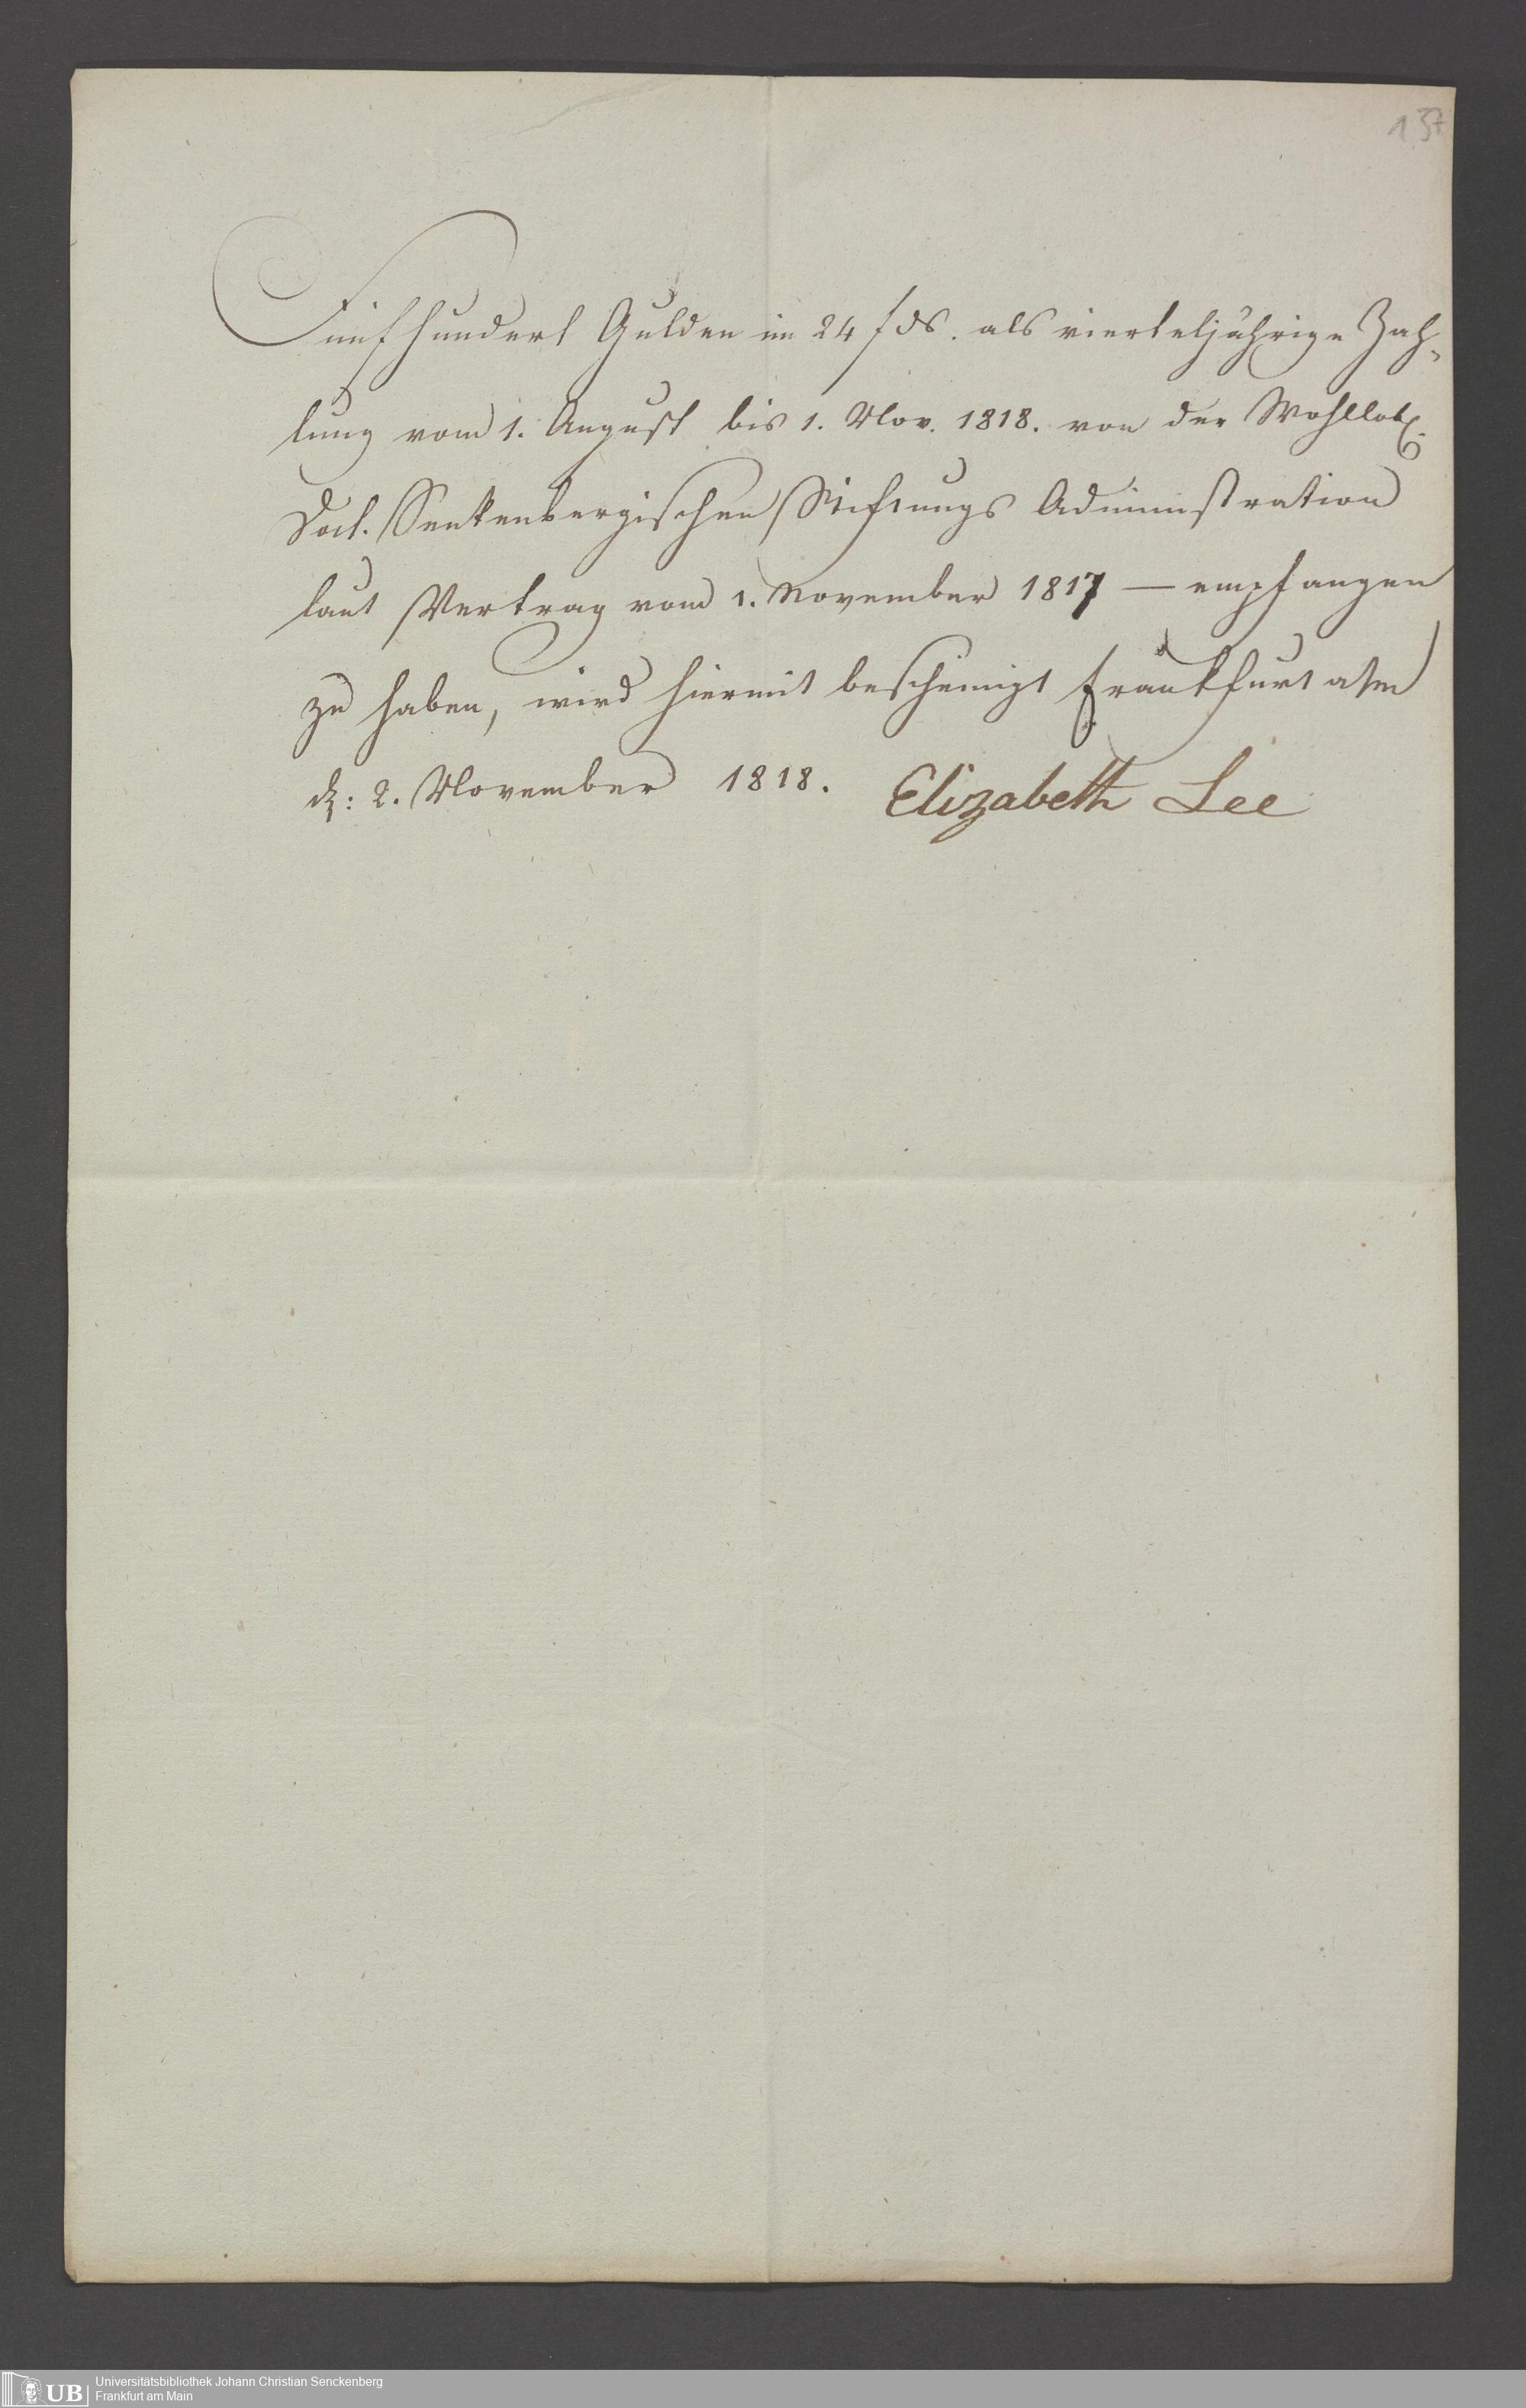 137
Fünfhundert Gulden im 24 f ds. als vierteljährige Zah-
lung vom 1. August bis 1. Nov. 1818. von der Wohllobl.
Doct. Senkenbergischen Stiftungs Administration
laut Vertrag vom 1. November 1817 — empfangen
zu haben, wird hiermit bescheinigt Frankfurt a/m
d: 2. November 1818. Elizabeth Lee
UB Universitätsbibliothek Johann Christian Senckenberg
Frankfurt am Main